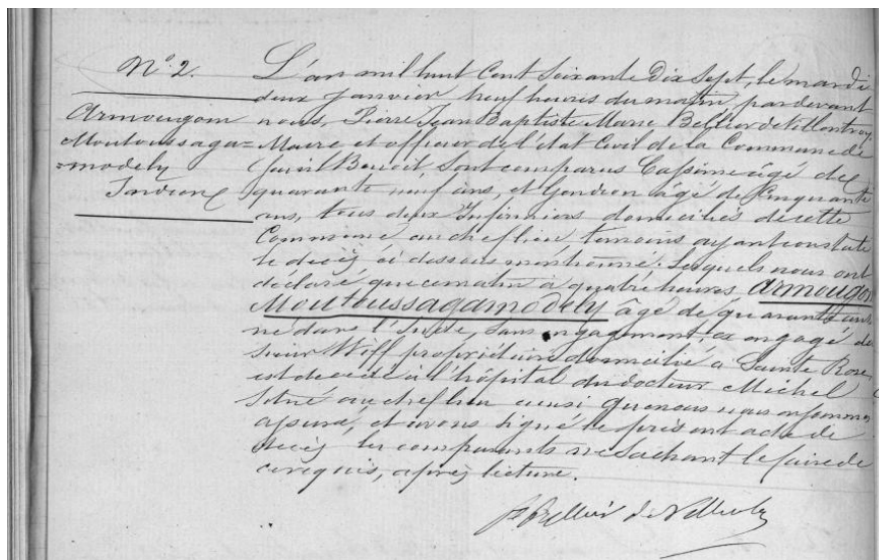 N°. 2.
Armougom
Moutoussaga=
=modely
Indien
L'an mil huit Cent Soixante Dix Sept, le mardi
deux Janvier neuf heures du matin, pardevant
nous, Pierre Jean Baptiste Marie Bellier de Villentroy
Maire et officier de l'état Civil de la Commune de
Saint Benoit, Sont comparus Cassime âgé de
quarante neuf ans, et Gondron âgé de Cinquante
ans, tous deux Infirmiers domiciliés de cette
Commune au chef lieu, temoins ayant constaté
le decès ci dessous mentionné. Lesquels nous ont
déclaré que ce matin à quatre heures Armougom
Moutoussagamodely âgé de quarante ans
né dans l'Inde, Sans engagement, ex engagé du
Sieur Wiff propriétaire domicilié à Sainte Rose,
est decédé à l'hôpital du docteur Michel
Situé au chef lieu ainsi que nous nous en sommes
assuré, et avons Signé le présent acte de
decès les comparants ne Sachant le faire de
ce requis, après lecture.
Bellier de Villentroy